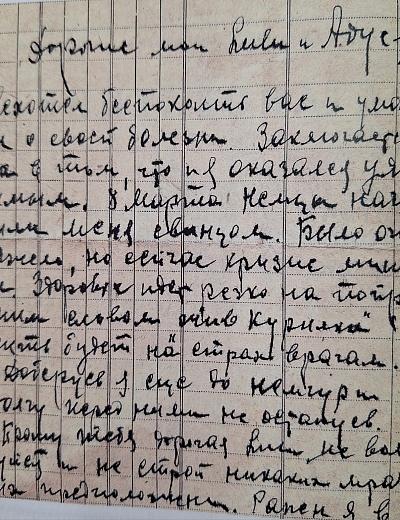 Дорогие мои Лили и Адус-
ехотел беспокоить вас и умо
и о своей болезни. Заключаетс
а в том, что я оказался уя
имым. 8 марта немцы нач
или меня свинцом. Было оч
яжело, но сейчас кризис мин
л. Здоровье идет резко на попр
ним словом жив Курилка"
ить будет на страх врагам.
Доберусь я еще до немчуры
олгу перед ними не останусь.
Прошу тебя дорогая Лили, не вол
уйся и не строй никаких мра
ых предположений. Ранен я в